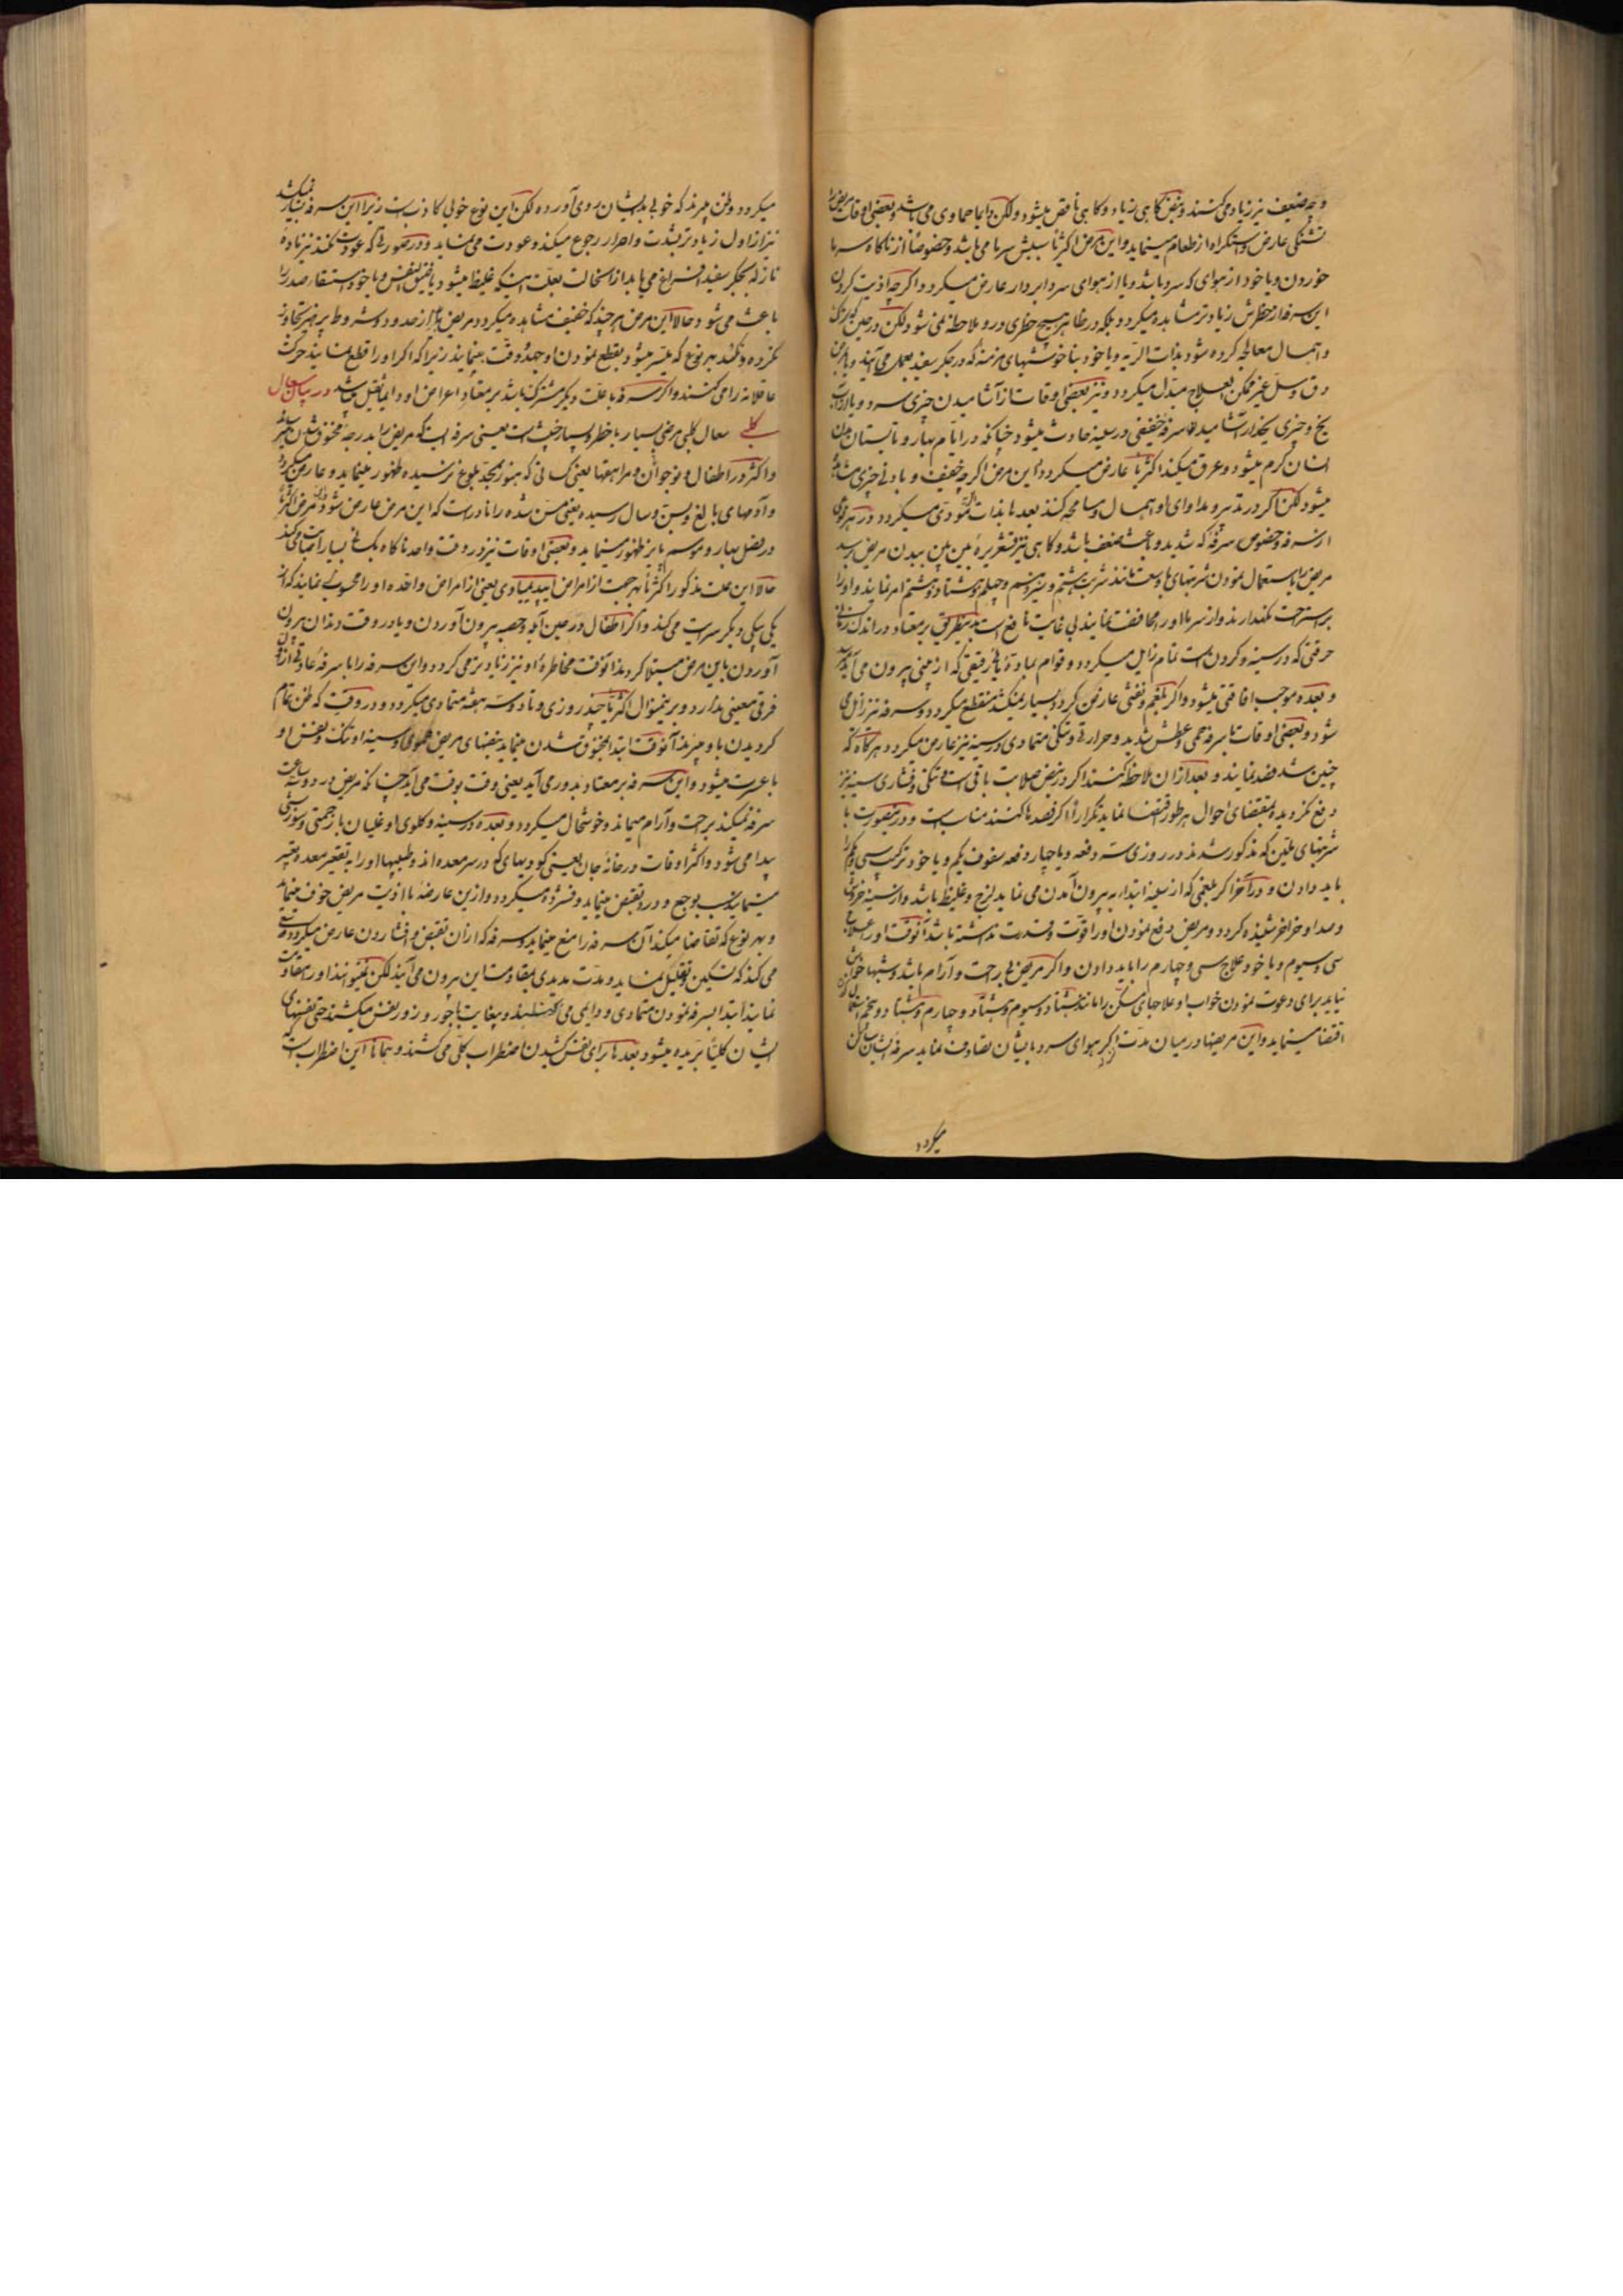 و چه ضعیف نیز زیاد می کنند و نبض گاهی زیاد و گاهی ناقص میشود ولکن دایما حماوی می باشد و بعضی اوقات مریض را
تشنگی عارض و استکراه از طعام مینماید و این مرض اکثریا سببش سرما می باشد وخصوصا از ناکاه سرما
خوردن و یا خود از هوای که سرد باشد و یا از هوای سرد ابردار عارض میکردد و اکرچه اذیت کردن
این سرفه از خطرش زیادتر مشاهده میکردد و بلکه در ظاهر هیچ خطری درو ملاحظه نمی شود ولکن در حین
و اهمال معالجه کرده شود بذات الریه و یا خود بناخوشیهای مزمنه که در جکر سفید بعمل می آیند و یا بمرض
دق و سل غیر ممکن العلاج مبدل میکردد و نیز بعضی اوقات از آشامیدن چیزی سرد و یا از آب
یخ و چیزی یخدار آشامیدن سرفه خفیفی در سینه حادث میشود چنانکه در ایام بهار و تابستان بدن
انسان کرم میشود و عرق میکند اکثریا عارض میکردد این مرض اکرچه خفیف و بادنی چیزی
میشود لکن اکر در تدبیر و مداوای او اهمال و مسامحه کنند بعدها بذات الریه مؤدی میکردد در هر نوعی
از سرفه وخصوص سرفه که شدید و باعث ضعف باشد و کاهی نیز قشعریره بین بین ببدن مریض برسد
مریض را باستعمال نمودن شربتهای باوسعت مانند شربت بیستم و بیست و نهم و چهلم و هشتاد و هشتم امر نمایند و او را
براستراحت نکهدارند و از سرما او را محافظت نمایند بی غایت نافع است بدینطریق بر معتاد در اندک زمانی
حرقتی که در سینه و کردن است تمام زایل میکردد و قوام بماده رقیقی که از بینی بیرون می آید
و بعده موجب افاقتی میشود و اکر بلغم و نفثی عارض کردد بسیار نمیکشد منقطع میکردد و سرفه نیز زایل می
شود و بعضی اوقات با سرفه حمی و عطش شدید و حرارتی و تنکی متمادی در سینه نیز عارض میکردد هرکاه که
چنین شد فصد نمایند و بعد از آن ملاحظه کنند اکر در نبض صلابت باقیست و تنکی و فشاری سینه نیز
دفع نکردیده بمقتضای احوال هر طور اقتضا نماید تکرارا اکر فصدها کنند مناسب است و درینصورت با
شربتهای ملین که مذکور شدند در روزی سه دفعه و یا چهار دفعه سفوف یکم و یا خود ترکیب سی و یکم را
باید دادن و در آخر اکر بلغمی که از سینه ابتدا به بیرون آمدن می نماید لزج و غلیظ باشد و از سینه خرخری
و صدا و خراخر شنیده کردد و مریض دفع نمودن او را قوت و قدرت نداشته باشد آنوقت او را علاج
سی و سیوم و یا خود علاج سی و چهارم را باید دادن و اکر مریض بی راحت و آرام باشد و شبها خوابش
نیاید برای دعوت نمودن خواب او علاجهای مسکن را مانند هشتاد و سیوم و هشتاد و چهارم و هشتاد و پنجم استعمال
اقتضا مینماید و این مریضها در میان مدت اکر هوای سرد بایشان تصادف نماید سرفه ایشان
میکردد
میکردد و ظن میبرند که خوبی بدیشان روی آورده لکن این نوع خوبی کاذبست زیرا این سرفه بسیار نمیکشد
نیز از اول زیادتر بشدت و اضرار رجوع میکند و عودت می نماید و در صورتی که عودت نکند نیز ماده
نازله بجکر سفید افراغ می یابد از استحالت بعلت اینکه غلیظ میشود یا ضیق النفس و یا خود استسقا صدر را
باعث می شود و حالا این مرض هرچند که خفیف مشاهده میکردد مریض باید از حدود و شروط پرهیز تجاوز
نکرده و نکند بهر نوع که میسر میشود بقطع نمودن او جهد و دقت بنمایند زیرا که اکر او را قطع نمایند حرکت
عاقلانه را می کنند و اکر سرفه با علت دیکر مشترک باشد بر معتاد اعراض او دایما ثقیل میباشد در بیان سعال
کلبی سعال کلبی مرضی بسیار با خطر و بسیار خبیث است یعنی سرفه ایست که مریض را بدرجه مخنوق شدن میرساند
و اکثر در اطفال و نوجوان و مراهقها یعنی کسانی که هنوز بحد بلوغ نرسیده ظهور مینماید و عارض میکردد
و آدمهای بالغ و بسن و سال رسیده یعنی مسن شده را نادرست که این مرض عارض شود و این مرض اکثریا
در فصل بهار و موسم پاییز ظهور مینماید و بعضی اوقات نیز در وقت واحد ناکاه بکسانی بسیار اصابت میکند
حالا این علت مذکور اکثریا بهر جهت از امراض اپیدیمیاوی یعنی از امراض وافده او را محسوب می نمایند که از
یکی بیکی دیکر سرایت می کند و اکر اطفال در حین آبله و حصبه بیرون آوردن و یا در وقت دندان بیرون
آوردن باین مرض مبتلا کردند آنوقت مخاطره او نیز زیادتر می کردد و این سرفه را با سرفه عادتی در اول
فرقی معینی ندارد و برینمنوال اکثریا چند روزی و تا دو سه هفته متمادی میکردد و در وقتی که ظن تمام
کردیدن باو میبرند آنوقت ابتدا بمخنوق شدن مینماید نبضهای مریض و سینه او تنک و نفس او
با عسرت میشود و این سرفه بر معتاد بدور می آید یعنی وقت بوقت می آید چنانکه مریض در دو سه ساعت
سرفه نمیکند براحت و آرام میماند و خوشحال میکردد و بعده در سینه و کلوی او غلیان با زحمتی و سوزشی
پیدا می شود و اکثر اوقات در خانه جان یعنی کودیهای که در سر معده اند و طبیبها او را به تقعیر معده تعبیر
مینمایند سبب بوجع و درد تقبض مینماید و فشرده میکردد و از این عارضه با اذیت مریض خوف مینماید
و بهر نوع که تقاضا میکند آن سرفه را منع مینماید و سرفه که از آن تقبض و افشاردن عارض میکردد سعی
می کند که تسکین و تقلیل نماید و مدت مدیدی بمقاومت این بیرون می آیند لکن نمیتوانند او را مقاومت
نمایند ابتدا بسرفه نمودن متمادی و دایمی می کنند و بغایت با جور و زور نفس میکشند حتی نفسهای
ایشان کلیتا بریده میشود بعدها برای نفس کشیدن اضطراب کلی می کشند و همانا این اضطراب است